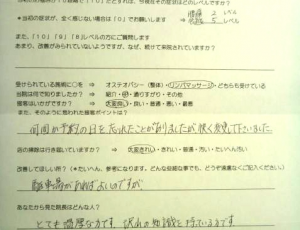 *当初の症状が、全く感じない場合は「0」でお願いします ⇒
腰痛 2 レベル
5 レベル
また、「10」「9」「8」レベルの方にご質問します
まあり、改善がみられていないようですが、なぜ、続けて来院されていますか?
受けられている施術に○を ⇒ オステオパシー(整体)・リンパマッサージ・どちらも受けている
当院は何で知りましたか? ⇒ 紹介・ ・通りすがり・その他
接客はいかがですか? ⇒ 大変良い・良い・普通・悪い・最悪
また、そのように思われた接客ポイントは?
何回か予約の日を忘れたことが有りましたが快く変更して下さいました。
店の掃除は行き届いていますか? ⇒ 大変きれい・きれい・普通・汚い・たいへん汚い
改善してほしい所?(*だいへん、参考になります。どんな些細な事でも、どうぞ遠慮なくご記入ください)
駐車場があればよいのですが、
あなたから見た院長はどんな人?
とても温厚な方です 沢山の知識を持っている方です